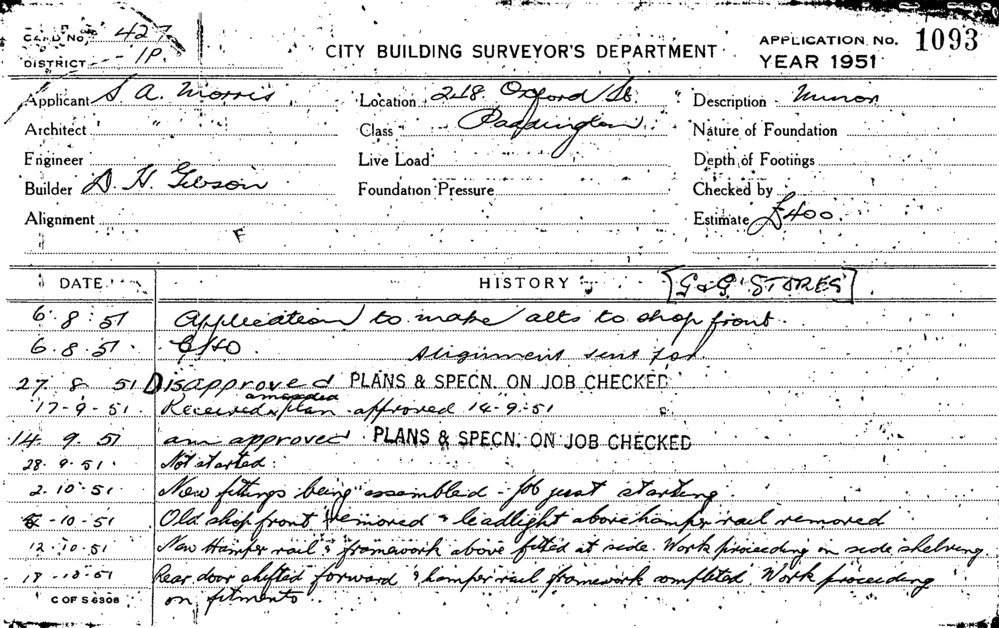 CARD No. 427
DISTRICT 1P.
CITY BUILDING SURVEYOR'S DEPARTMENT
APPLICATION No. 1093
YEAR 1951
Applicant S. A. Morris Location 218 Oxford St. Description Minor
Architect " Class Paddington Nature of Foundation
Engineer Live Load Depth of Footings
Builder D. H. Gibson Foundation Pressure Checked by
Alignment Estimate £400
F
DATE HISTORY [G & G STORES]
6. 8. 51 Application to make alts to shop front.
6. 8. 51 Alignment sent for.
27 8 51 Disapproved PLANS & SPECN. ON JOB CHECKED
17-9-51 Received amended plan approved 14-9-51
14 9 51 am approved PLANS & SPECN. ON JOB CHECKED
28. 9. 51. Not started.
2. 10. 51 New fittings being assembled - job just starting.
-10-51 Old shop front removed & leadlight above hamper rail removed
12-10-51 New Hamper rail & framework above fitted at side. Work proceeding on side shelving
18-10-51 Rear door shifted forward & hamper rail framework completed Work proceeding
C OF S 6308 on fitments.